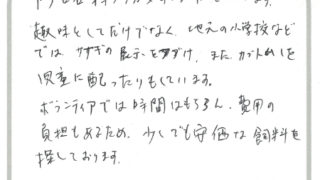 趣味としてだけでなく、地元の小学校など
では の展示を 、また カブトムシを
児童に配ったりもしています。
ボランティアでは時間はもちろん、費用の
負担もあるため、少しでも安価な飼料を
探しております。